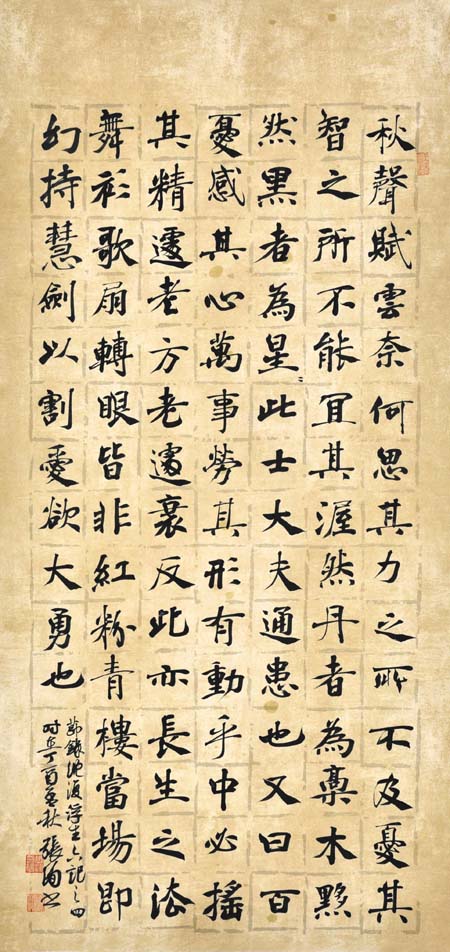 秋聲賦雲奈何思其力之所不及憂其
智之所不能冝其渥然丹者為槀木黟
然黑者為星〻此士大夫通患也又曰百
憂感其心萬事勞其形有動乎中必搖
其精遽老方老遽衰反此亦長生之法
舞衫歌扇轉眼皆非紅粉青樓當場即
幻持慧劍以割愛欲大勇也
節錄沈復浮生六記之四
时丁酉秋張书